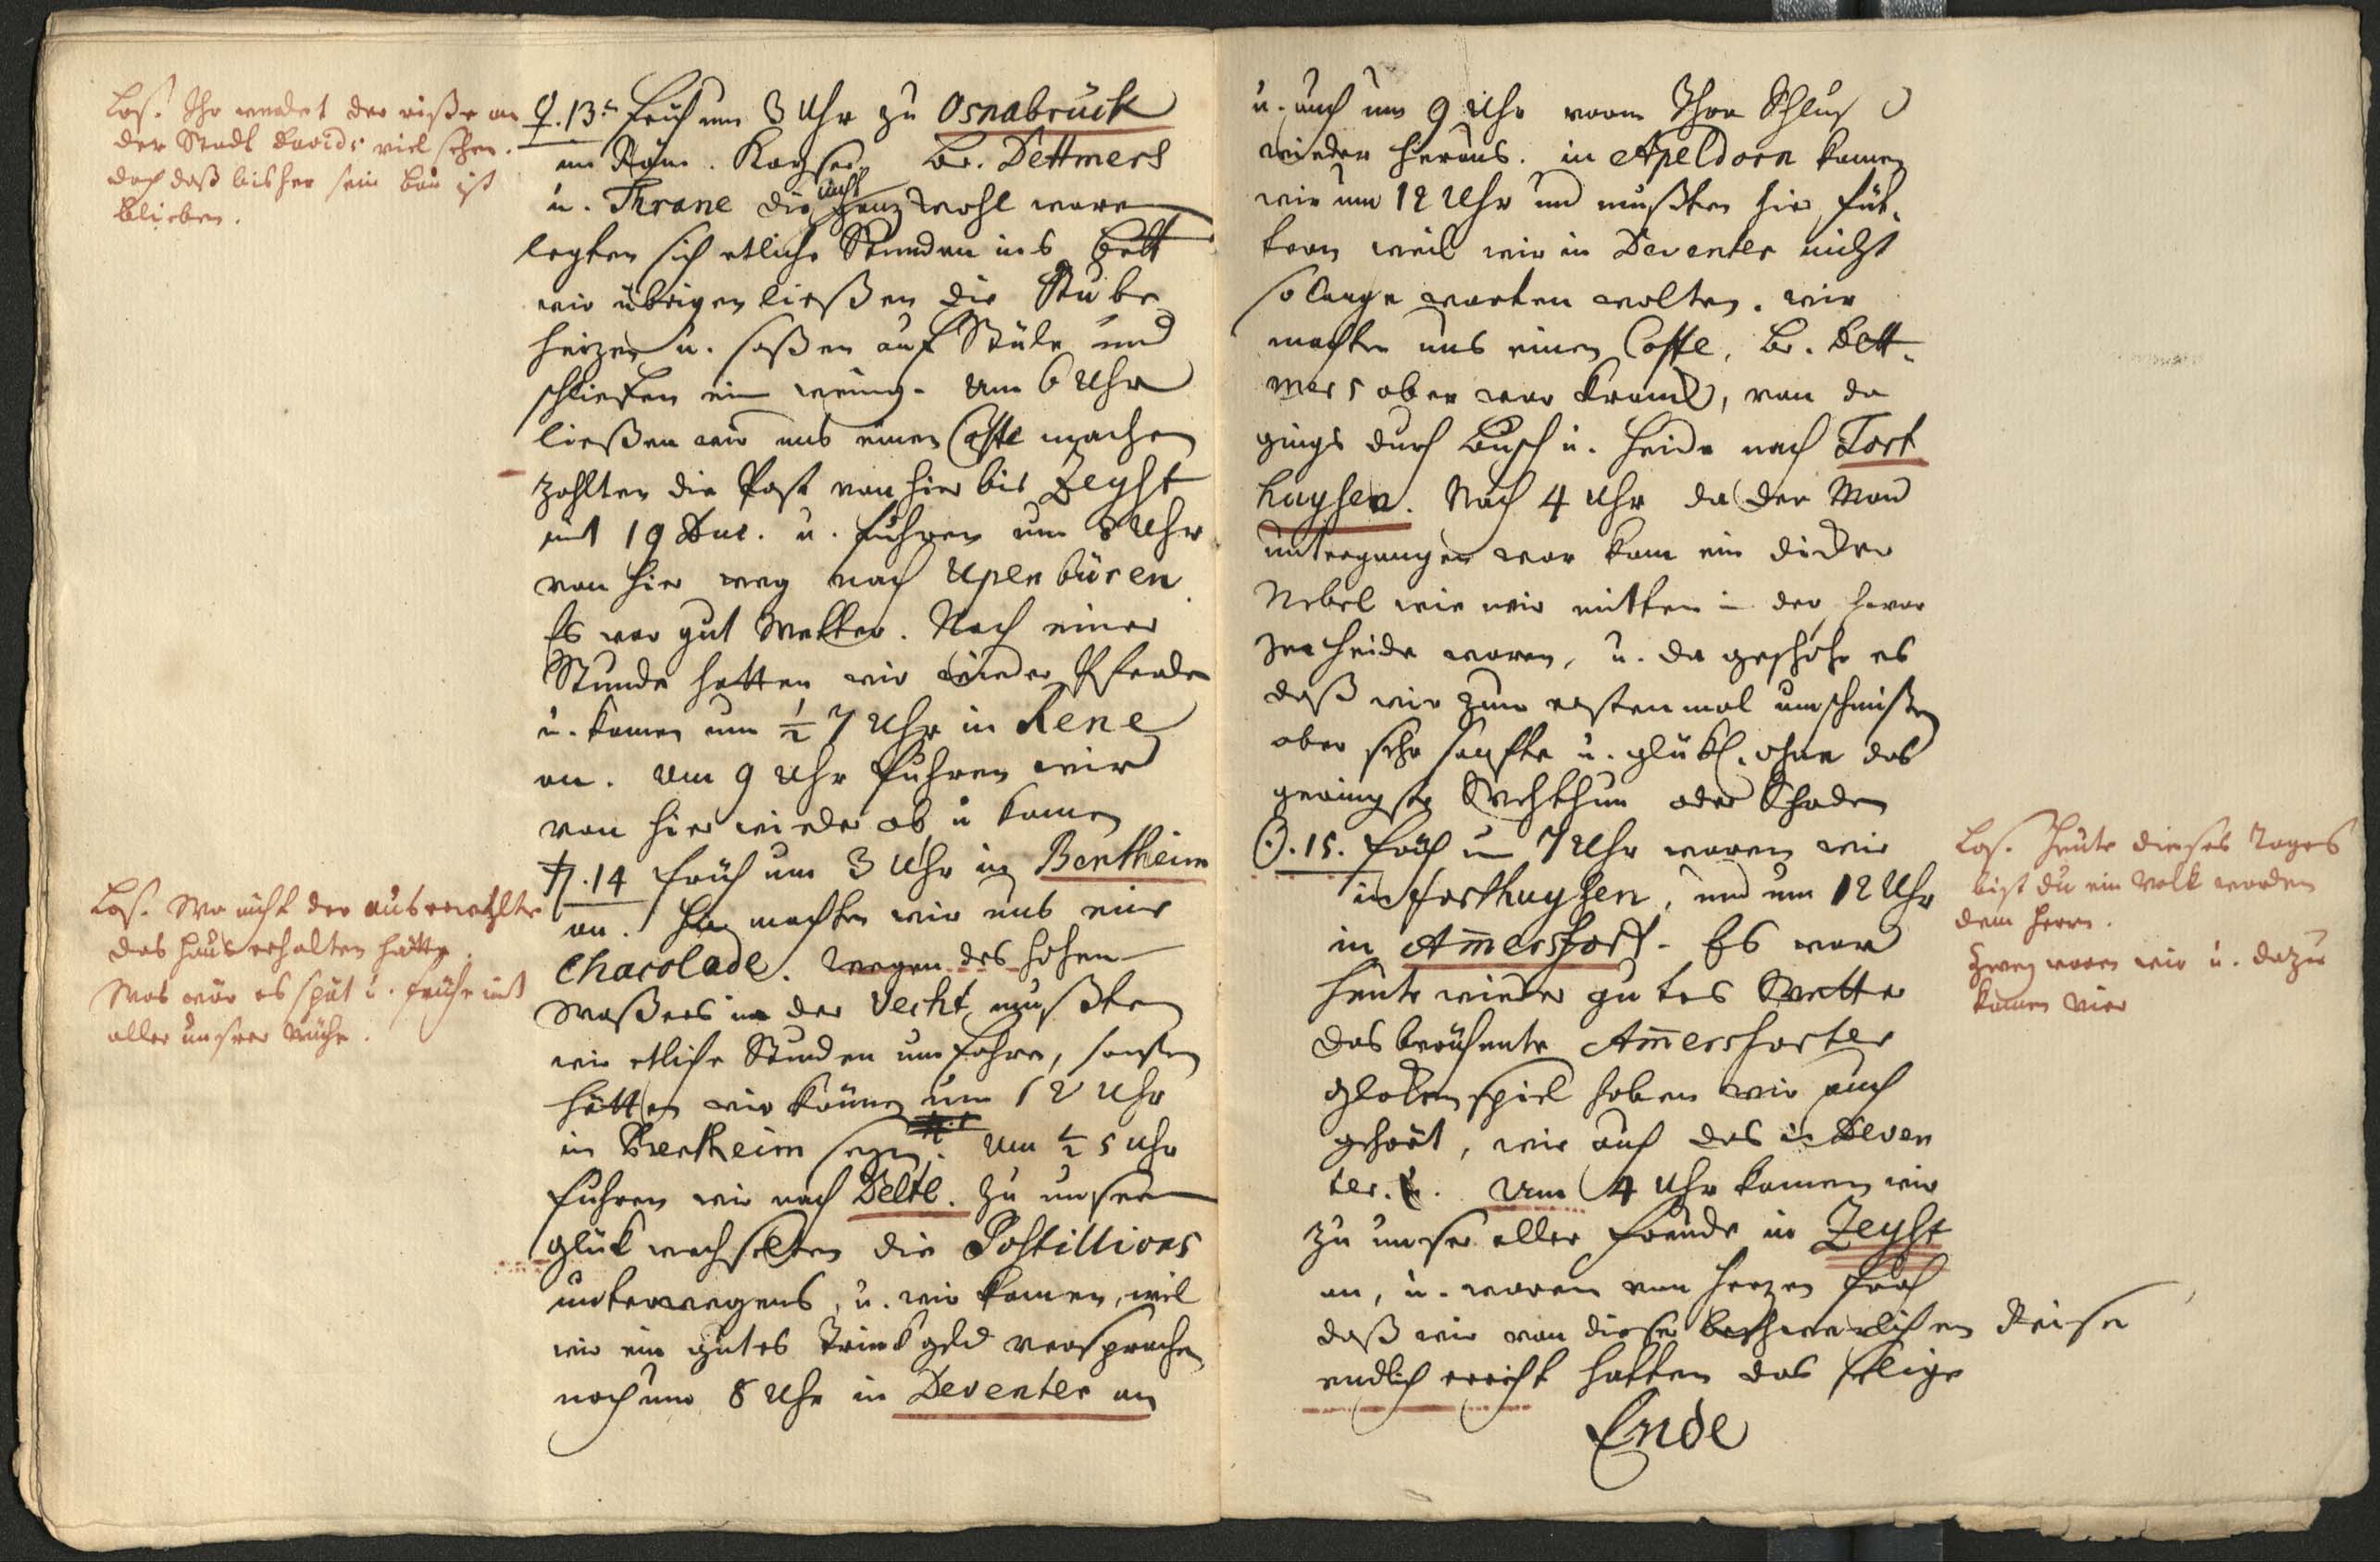 Los. Ihr werdet der riße an
der Stadt Davids viel sehen.
doch daß bisher sein bau ist
blieben.
♀. 13.t früh um 3 Uhr zu Osnabrück
im Röm. Kayser. Br. Dettmers
u. Thrane die nicht ganz wohl waren
legten sich etliche Stunden ins bett
wir übrigen ließen die Stube
heizen u. saßen auf Stüle und
schliefen ein wenig. Um 6 Uhr
ließen wir uns einen Coffe machen
zahlten die Post von hier bis Zeyst
mit 19 Duc. u. fuhren um 8 Uhr
von hier weg nach Upenbüren
Es war gut Wetter. Nach einer
Stunde hatten wir wieder Pferde
u. kamen um ½ 7 Uhr in Rene
an. Um 9 Uhr fuhren wir
von hier wieder ab u kamen
♄. 14 früh um 3 Uhr in Bentheim
an. Hier machten wir uns eine
Chacolade. Wegen des hohen
Waßers in der Vecht mußten
wir etliche Stunden umfahren, sonsten
hätten wir können um 12 Uhr
in Bentheim seyn. Um ½ 5 Uhr
fuhren wir nach Delte. Zu unserm
glük wechselten die Postillions
unterwegens, u. wir kamen, weil
wir ein gutes Trinkgeld versprachen
noch um 8 Uhr in Deventer an
Los. Wo nicht der auserwehlte
das Haus erhalten hätte.
Was wär es spät u. frühe mit
aller unsrer Mühe.
u. auch um 9 Uhr vorm Thor Schluß
wieder heraus. in Apeldorn kamen
wir um 12 Uhr und mußten hier füt-
tern weil wir in Deventer nicht
so lange warten wolten. wir
machten uns einen Coffe, Br. Dett-
mers aber war krank, von da
gings durch Busch u. Heide nach Forst
huysen. Nach 4 Uhr da der Mond
untergangen war kam ein dicker
Nebel wie wir mitten in der
Heide waren, u. da geschahe es
daß wir zum erstenmal umschmißen
aber sehr sanfte u. glükl. ohne das
geringste Wehthun oder Schaden
☉. 15. früh um 7 Uhr waren wir
in Forsthuysen, und um 12 Uhr
in Am̄ersfort. Es war
heute wieder gutes Wetter
das berühmte Am̄ersforter
Glokenspiel haben wir auch
gehört, wie auch das in Deven
ter. Um 4 Uhr kamen wir
zu unser aller Freude in Zeyst
an, u. waren von Herzen froh
daß wir von dieser beschwerlichen Reise
endlich erreicht hatten das selige
Ende
Los. Heute dieses Tages
bist du ein Volk worden
dem Herrn.
Zwey waren wir u. dazu
kamen vier